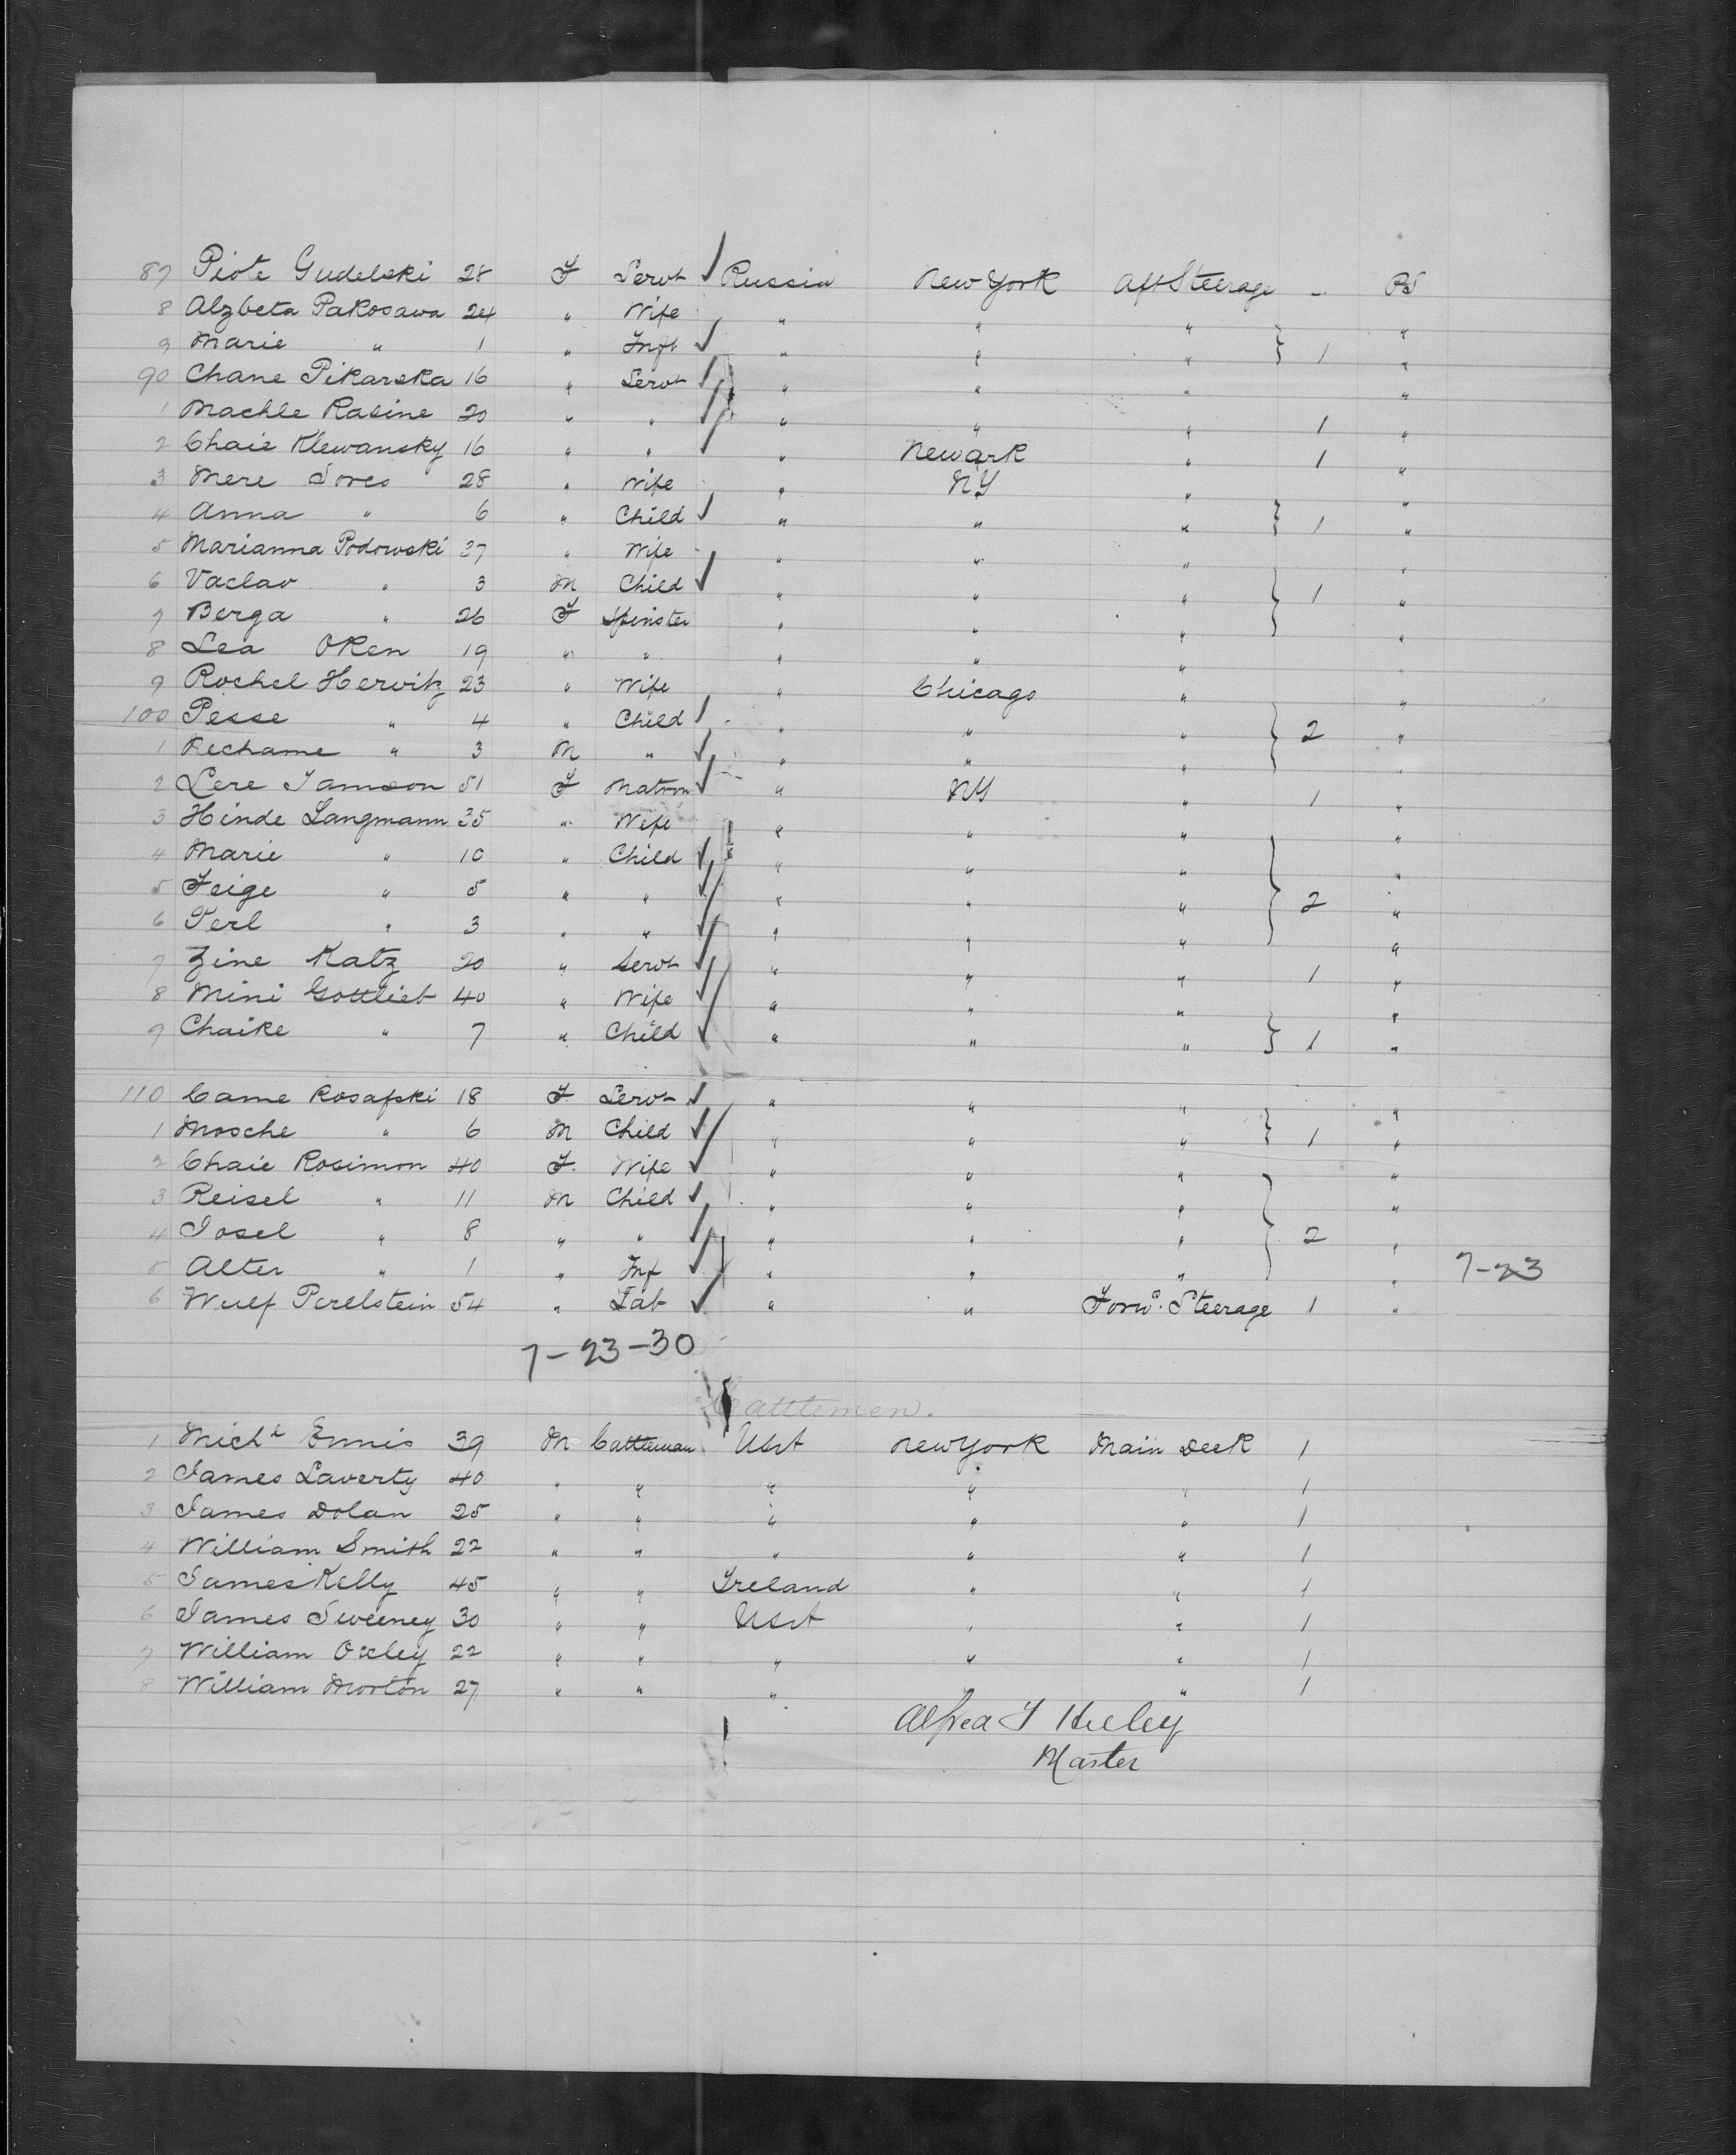 87 Piote Gudelski 28 F Servt Russia New York Aft Steerage - PS
8 Alzbeta Pakosawa 24 " Wife " " " "
9 Marie " 1 " Inft " " " } 1 "
90 Chane Pikarska 16 " Servt " " " "
1 Machle Rasine 20 " " " " " 1 "
2 Chaie Klewansky 16 " " " Newark " 1 "
3 Mere Sores 28 " Wife " NY " "
4 Anna " 6 " Child " " " } 1 "
5 Marianna Podowski 37 " Wife " " " "
6 Vaclav " 3 M Child " " " } 1 "
7 Berga " 26 F Spinster " " " "
8 Lea Oken 19 " " " " " "
9 Rochel Herwitz 23 " Wife " Chicago " "
100 Pesse " 4 " Child " " " } 2 "
1 Nechame " 3 M " " " " "
2 Lere Jamson 51 F Matron " NY " 1 "
3 Hinde Langmann 35 " Wife " " " "
4 Marie " 10 " Child " " " "
5 Feige " 5 " " " " " } 2 "
6 Perl " 3 " " " " " "
7 Zine Katz 20 " Servt " " " 1 "
8 Mini Gottlieb 40 " Wife " " " "
9 Chaike " 7 " Child " " " } 1 "
110 Came Rosafski 18 F Servt " " " "
1 Mosche " 6 M Child " " " } 1 "
2 Chaie Rosimon 40 F Wife " " " "
3 Reisel " 11 M Child " " " "
4 Josel " 8 " " " " " } 2 "
5 Alter " 1 " Inf " " " " 7-23
6 Wulf Perelstein 54 " Lab " " Forwd. Steerage 1 "
7-23-30
Cattlemen.
1 Michl Ennis 39 M Cattleman USA New York Main Deck 1
2 James Laverty 40 " " " " " 1
3 James Dolan 25 " " " " " 1
4 William Smith 22 " " " " " 1
5 James Kelly 45 " " Ireland " " 1
6 James Sweeney 30 " " USA " " 1
7 William Oxley 22 " " " " " 1
8 William Morton 27 " " " " " 1
Alfred T Heeley
Master